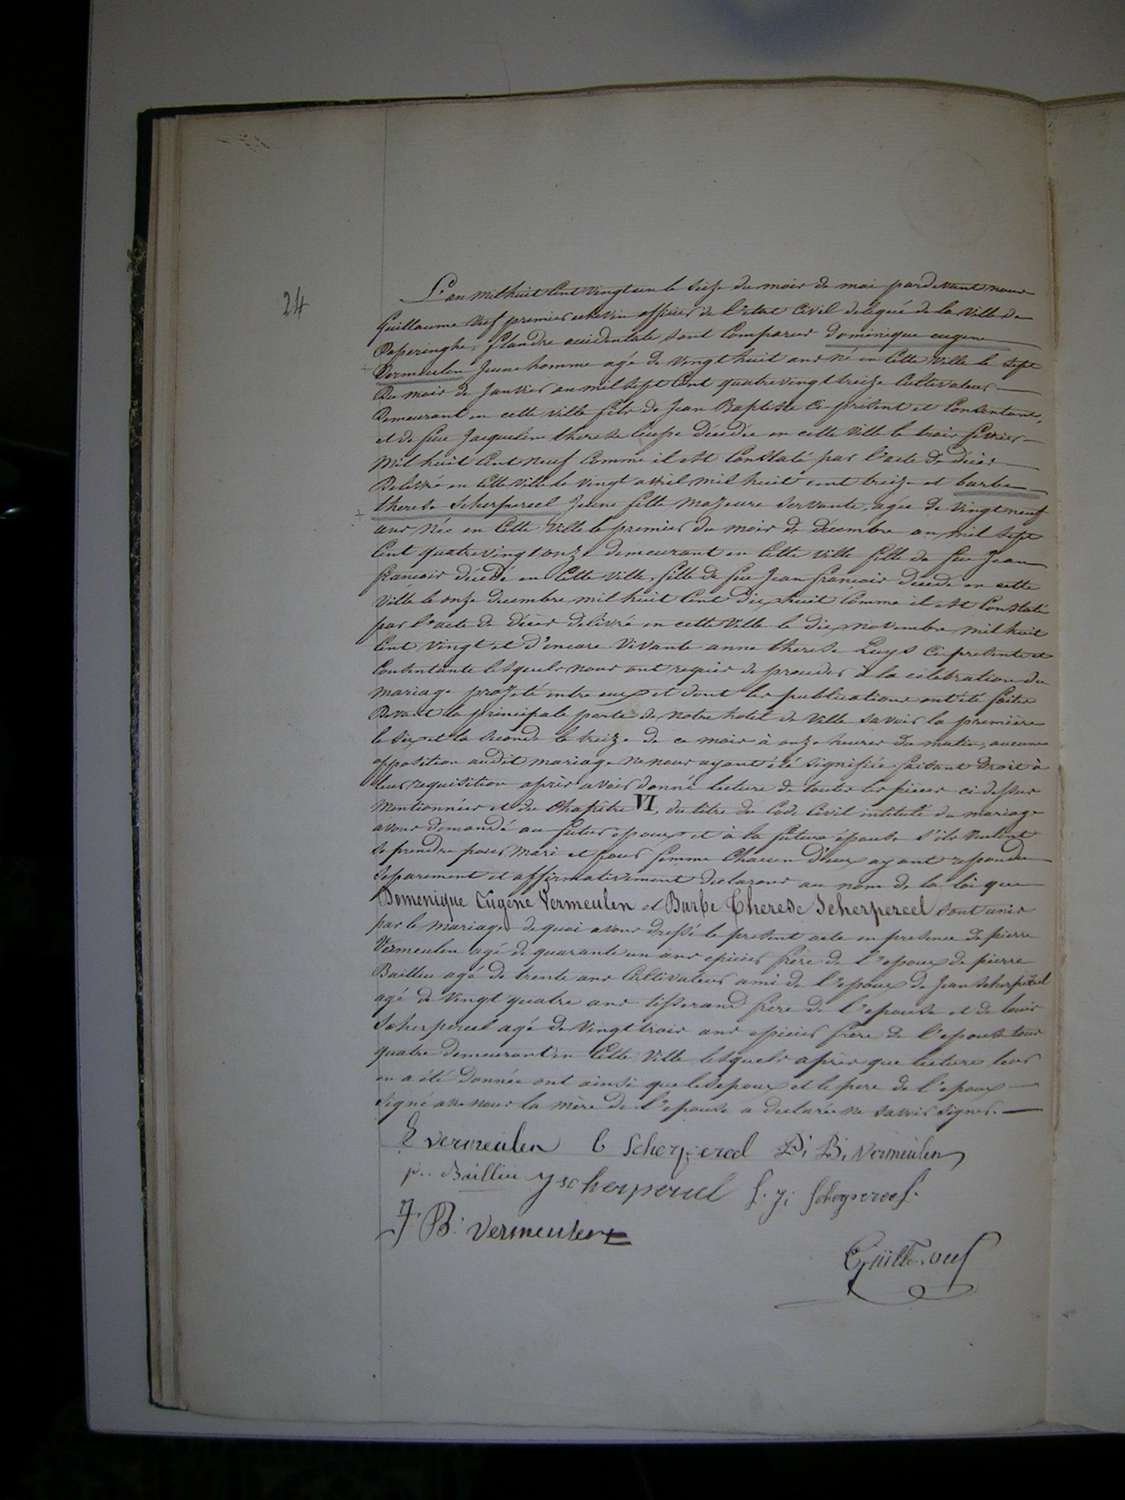 24
L'an mil huit Cent vingt un le Seize du mois de mai pardevant nous
Guillaume Neuf premier echevin officier de l'état Civil delegué de la Ville de
Poperinghe, flandre occidentale sont Comparus dominique eugene
Vermeulen Jeune homme agé de vingt huit ans né en Cette Ville le Sept
du mois de Janvier an mil sept Cent quatre vingt treize Cultivateur
demeurant en cette ville fils de Jean Baptiste Ci présent et Consentant,
et de feue Jacqueline therese décédée en cette Ville le trois fevrier
mil huit Cent neuf Comme il est Constaté par l'acte de décès
delivré en Cette Ville le vingt avril mil huit cent treize et barbe
therese Scherpereel Jeune fille majeure Servante, agée de vingt neuf
ans Née en Cette Ville le premier du mois de decembre an mil Sept
Cent quatre vingt onze demeurant en Cette Ville fille de feu Jean
francois décédé en Cette Ville, fille de feu Jean francois décédé en cette
Ville le onze decembre mil huit Cent dix huit Comme il est Constaté
par l'acte de décès delivré en cette Ville le dix novembre mil huit
Cent vingt et d'encore Vivante anne therese Luys Ci presente et
Consentante lesquels nous ont requis de proceder à la célébration du
mariage projeté entre eux et dont les publications ont été faites
devant la principale porte de notre hotel de Ville Savoir la première
le Six et la Seconde le treize de ce mois à onze heures du matin, aucune
opposition audit mariage ne nous ayant été Signifiée faisant droit à
leur requisition après avoir donné lecture de toutes les pieces ci dessus
mentionnées et du Chapitre VI, du titre du Code Civil intitulé du mariage
avons demandé au futur epoux et à la future épouse S'ils veulent
Se prendre pour mari et pour femme Chacun d'eux ayant repondu
Separement et affirmativement declarons au nom de la loi que
Domenique Eugène Vermeulen et Barbe Therese Scherpereel Sont unis
par le mariage de quoi avons dressé le présent acte en presence de pierre
Vermeulen agé de quarante un ans epicier frère de l'epoux de pierre
Baillieu agé de trente ans Cultivateur ami de l'epoux de Jean Scherpereel
agé de Vingt quatre ans tisserand frère de l'epouse et de louis
Scherpereel agé de Vingt trois ans epicier frère de l'epouse tous
quatre demeurant en Cette Ville lesquels après que lecture leur
en a été donnée ont ainsi que les epoux et le pere de l'epoux
Signé avec nous la mère de l'epouse a declaré ne savoir signer.
E vermeulen b Scherpereel P: B: Vermeulen
p. Baillieu J scherpereel L. J: Scherpereel.
J: B: Vermeulen
Guill Neuf